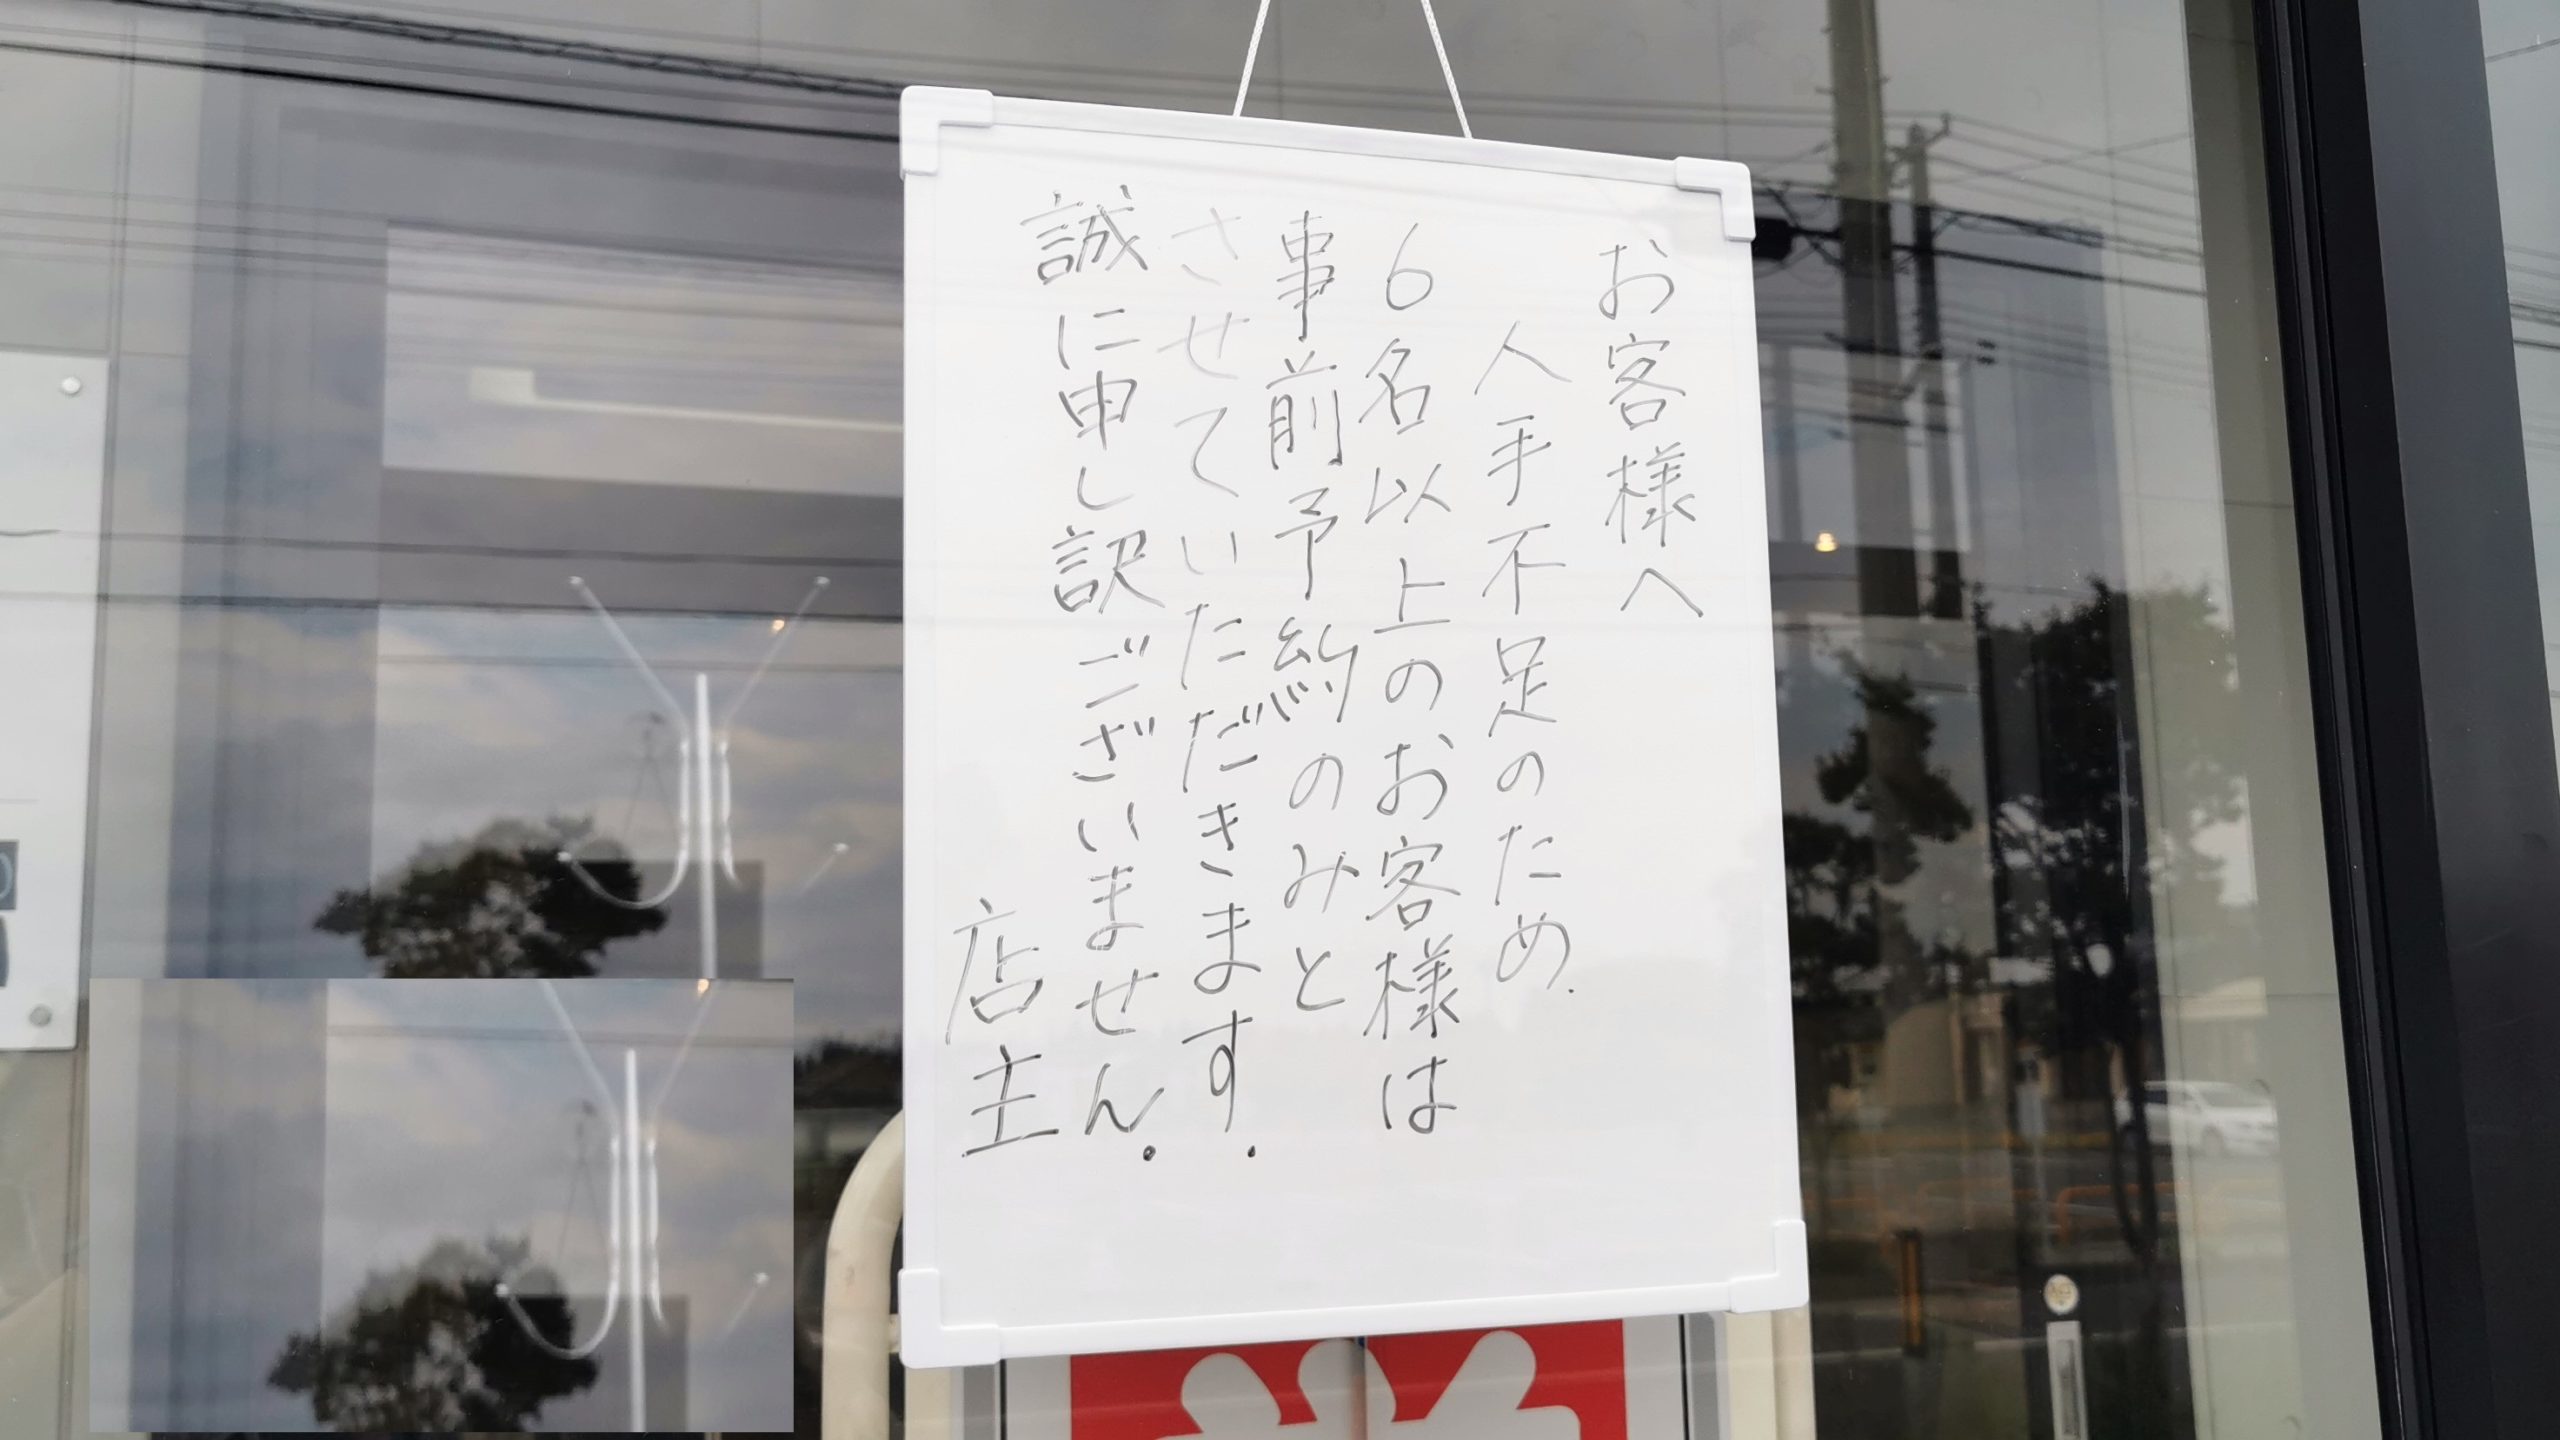 お客様へ
人手不足のため.
6名以上のお客様は
事前予約のみと
させていただきます.
誠に申し訳ございません.
店主